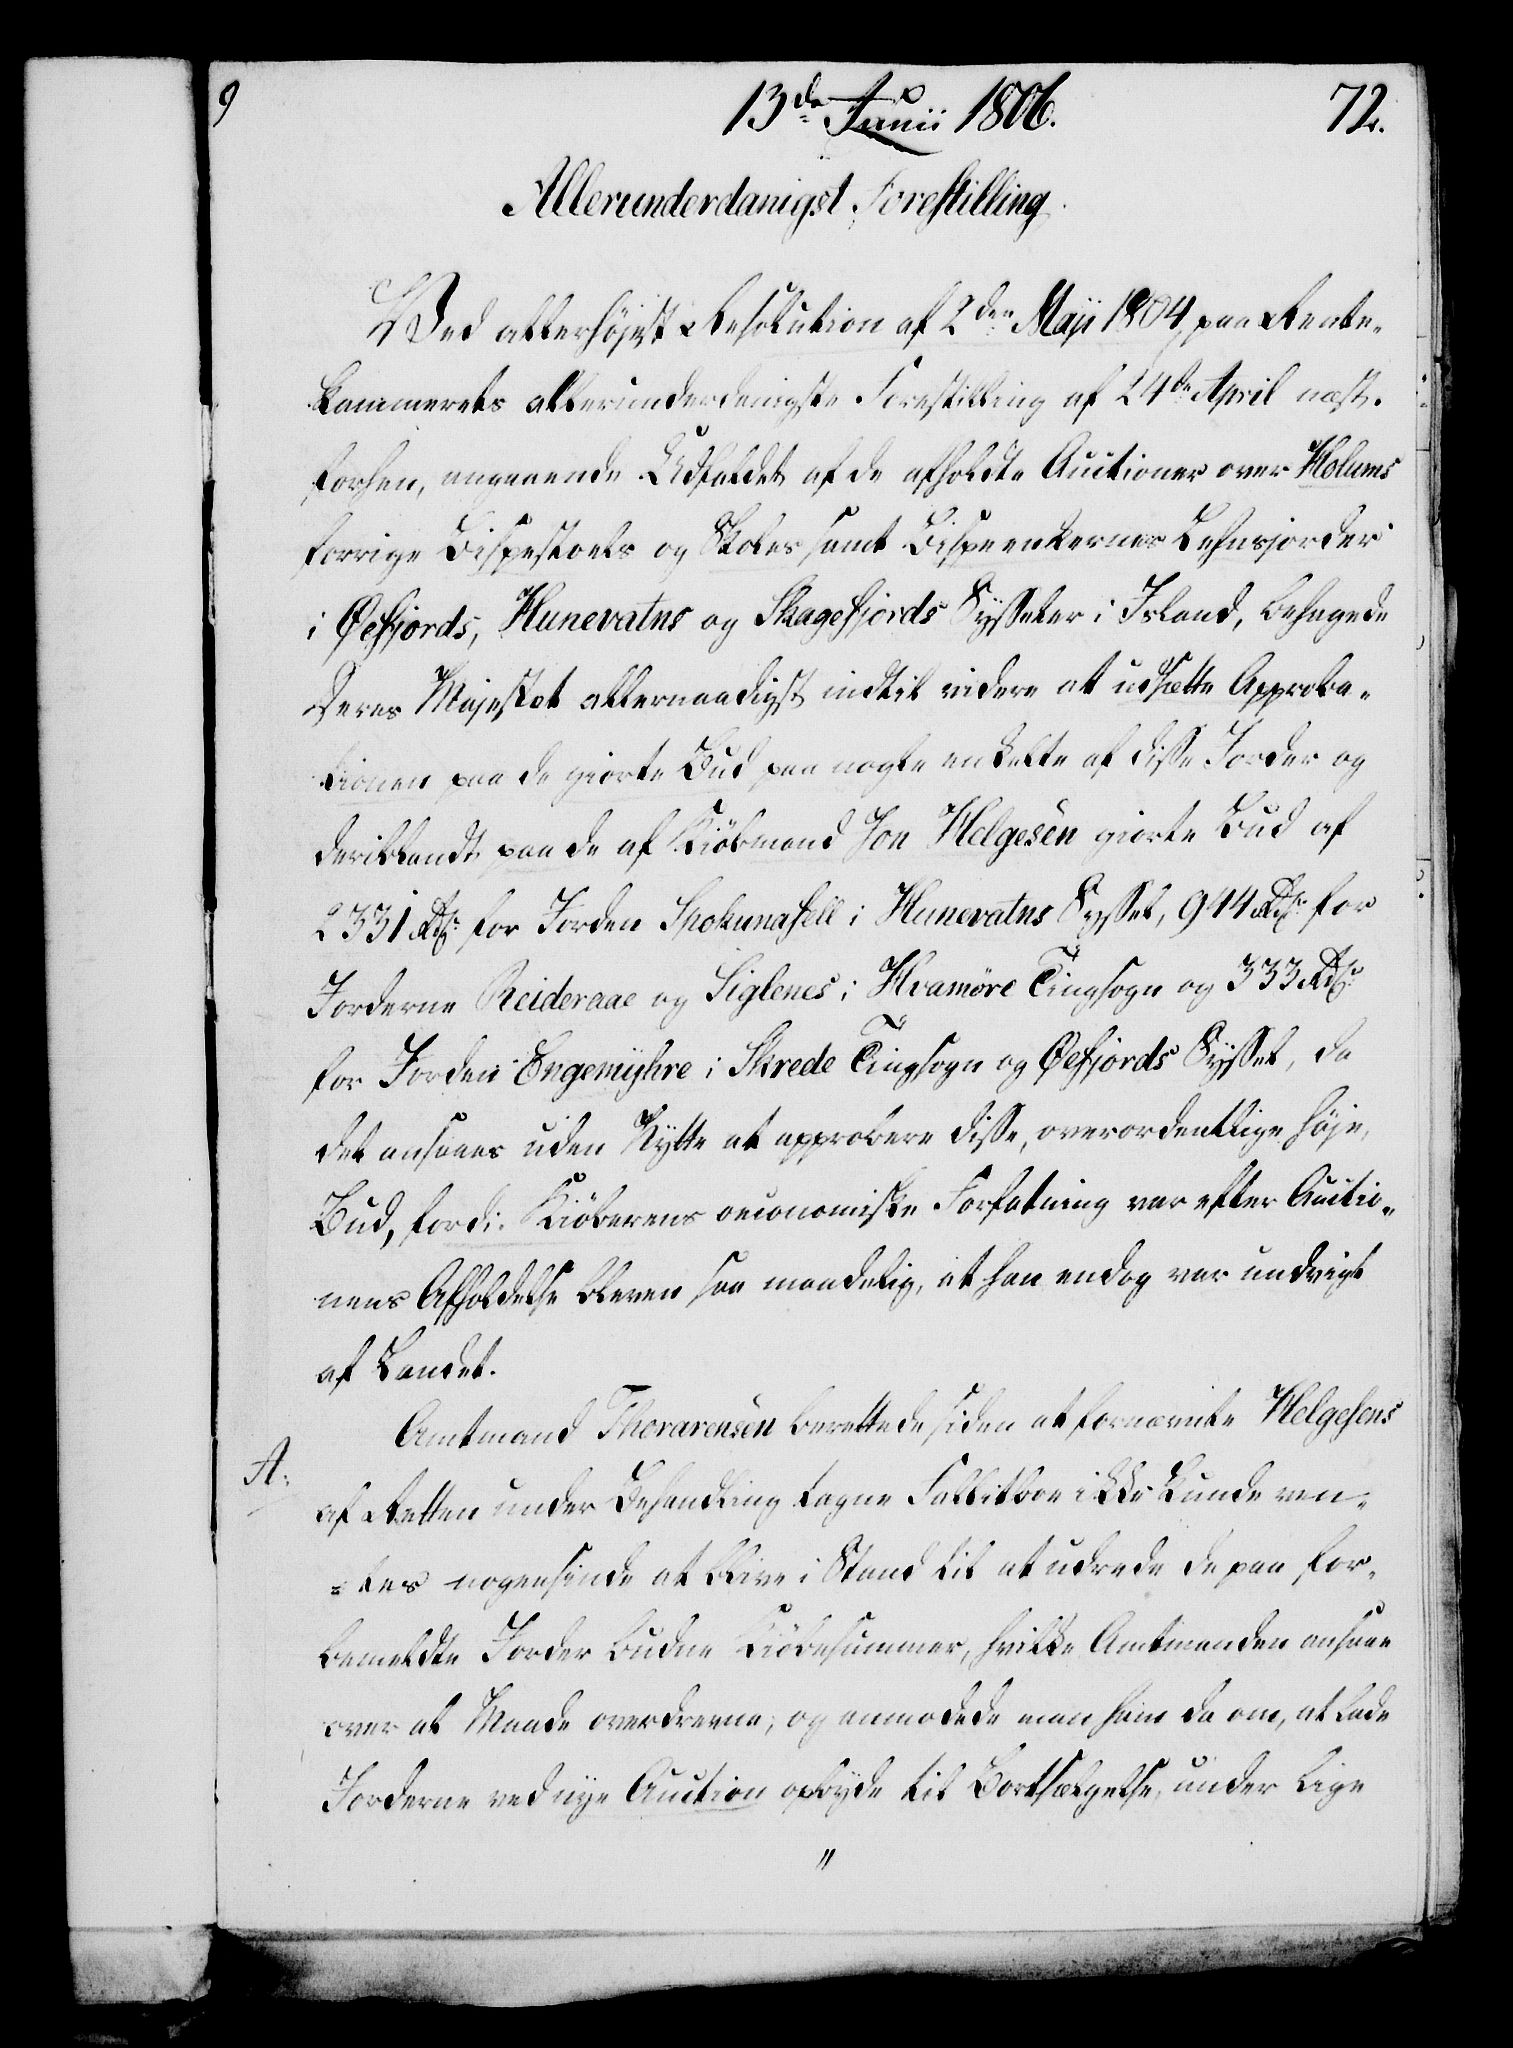 9
13de Junii 1806.
72.
Allerunderdanigst Forestilling.
Ved allerhöjest Resolution af 2den Maji 1804, paa Rente-
kammerets allerunderdanigste Forestilling af 24de April næst-
forhen, angaaende Udfaldet af de afholdte Auctioner over Holums
forrige Bispestoels og Skoles samt Bispeenkernes Lehnsjorder
i Øefjords, Hunevatns og Skagefjords Sysseler i Island, behagede
Deres Majestæt allernaadigst indtil videre at udsætte Approba-
tionen paa de giorte Bud paa nogle enkelte af disse Jorder og
deriblandt paa de af Kiöbmand Jon Helgesen giorte Bud af
2331 Rdr. for Jorden Spokunafell i Hunevatns Syssel, 944 Rdr. for
Jorderne Reideraae og Siglenes i Hvamöre Tingsogn og 333 Rdr.
for Jorden Engemyhre i Skrede Tingsogn og Øefjords Syssel, da
det ansaaes uden Nytte at approbere disse, overordentlige höje,
Bud, fordi Kiöberens oeconomiske Forfatning var efter Auctio-
nens Afholdelse bleven saa maadelig, at han endog var undvigt
af Landet.
Amtmand Thorarensen berettede siden at fornævnte Helgesens
A.
af Retten under Behandling tagne Fallitboe ikke kunde ven-
-tes nogensinde at blive i Stand til at udrede de paa for-
bemeldte Jorder budne Kiöbesummer, hvilke Amtmanden ansaae
over al Maade overdrevne; og anmodede man ham da om, at lade
Jorderne ved nye Auction opbyde til Bortsælgelse, under lige
"